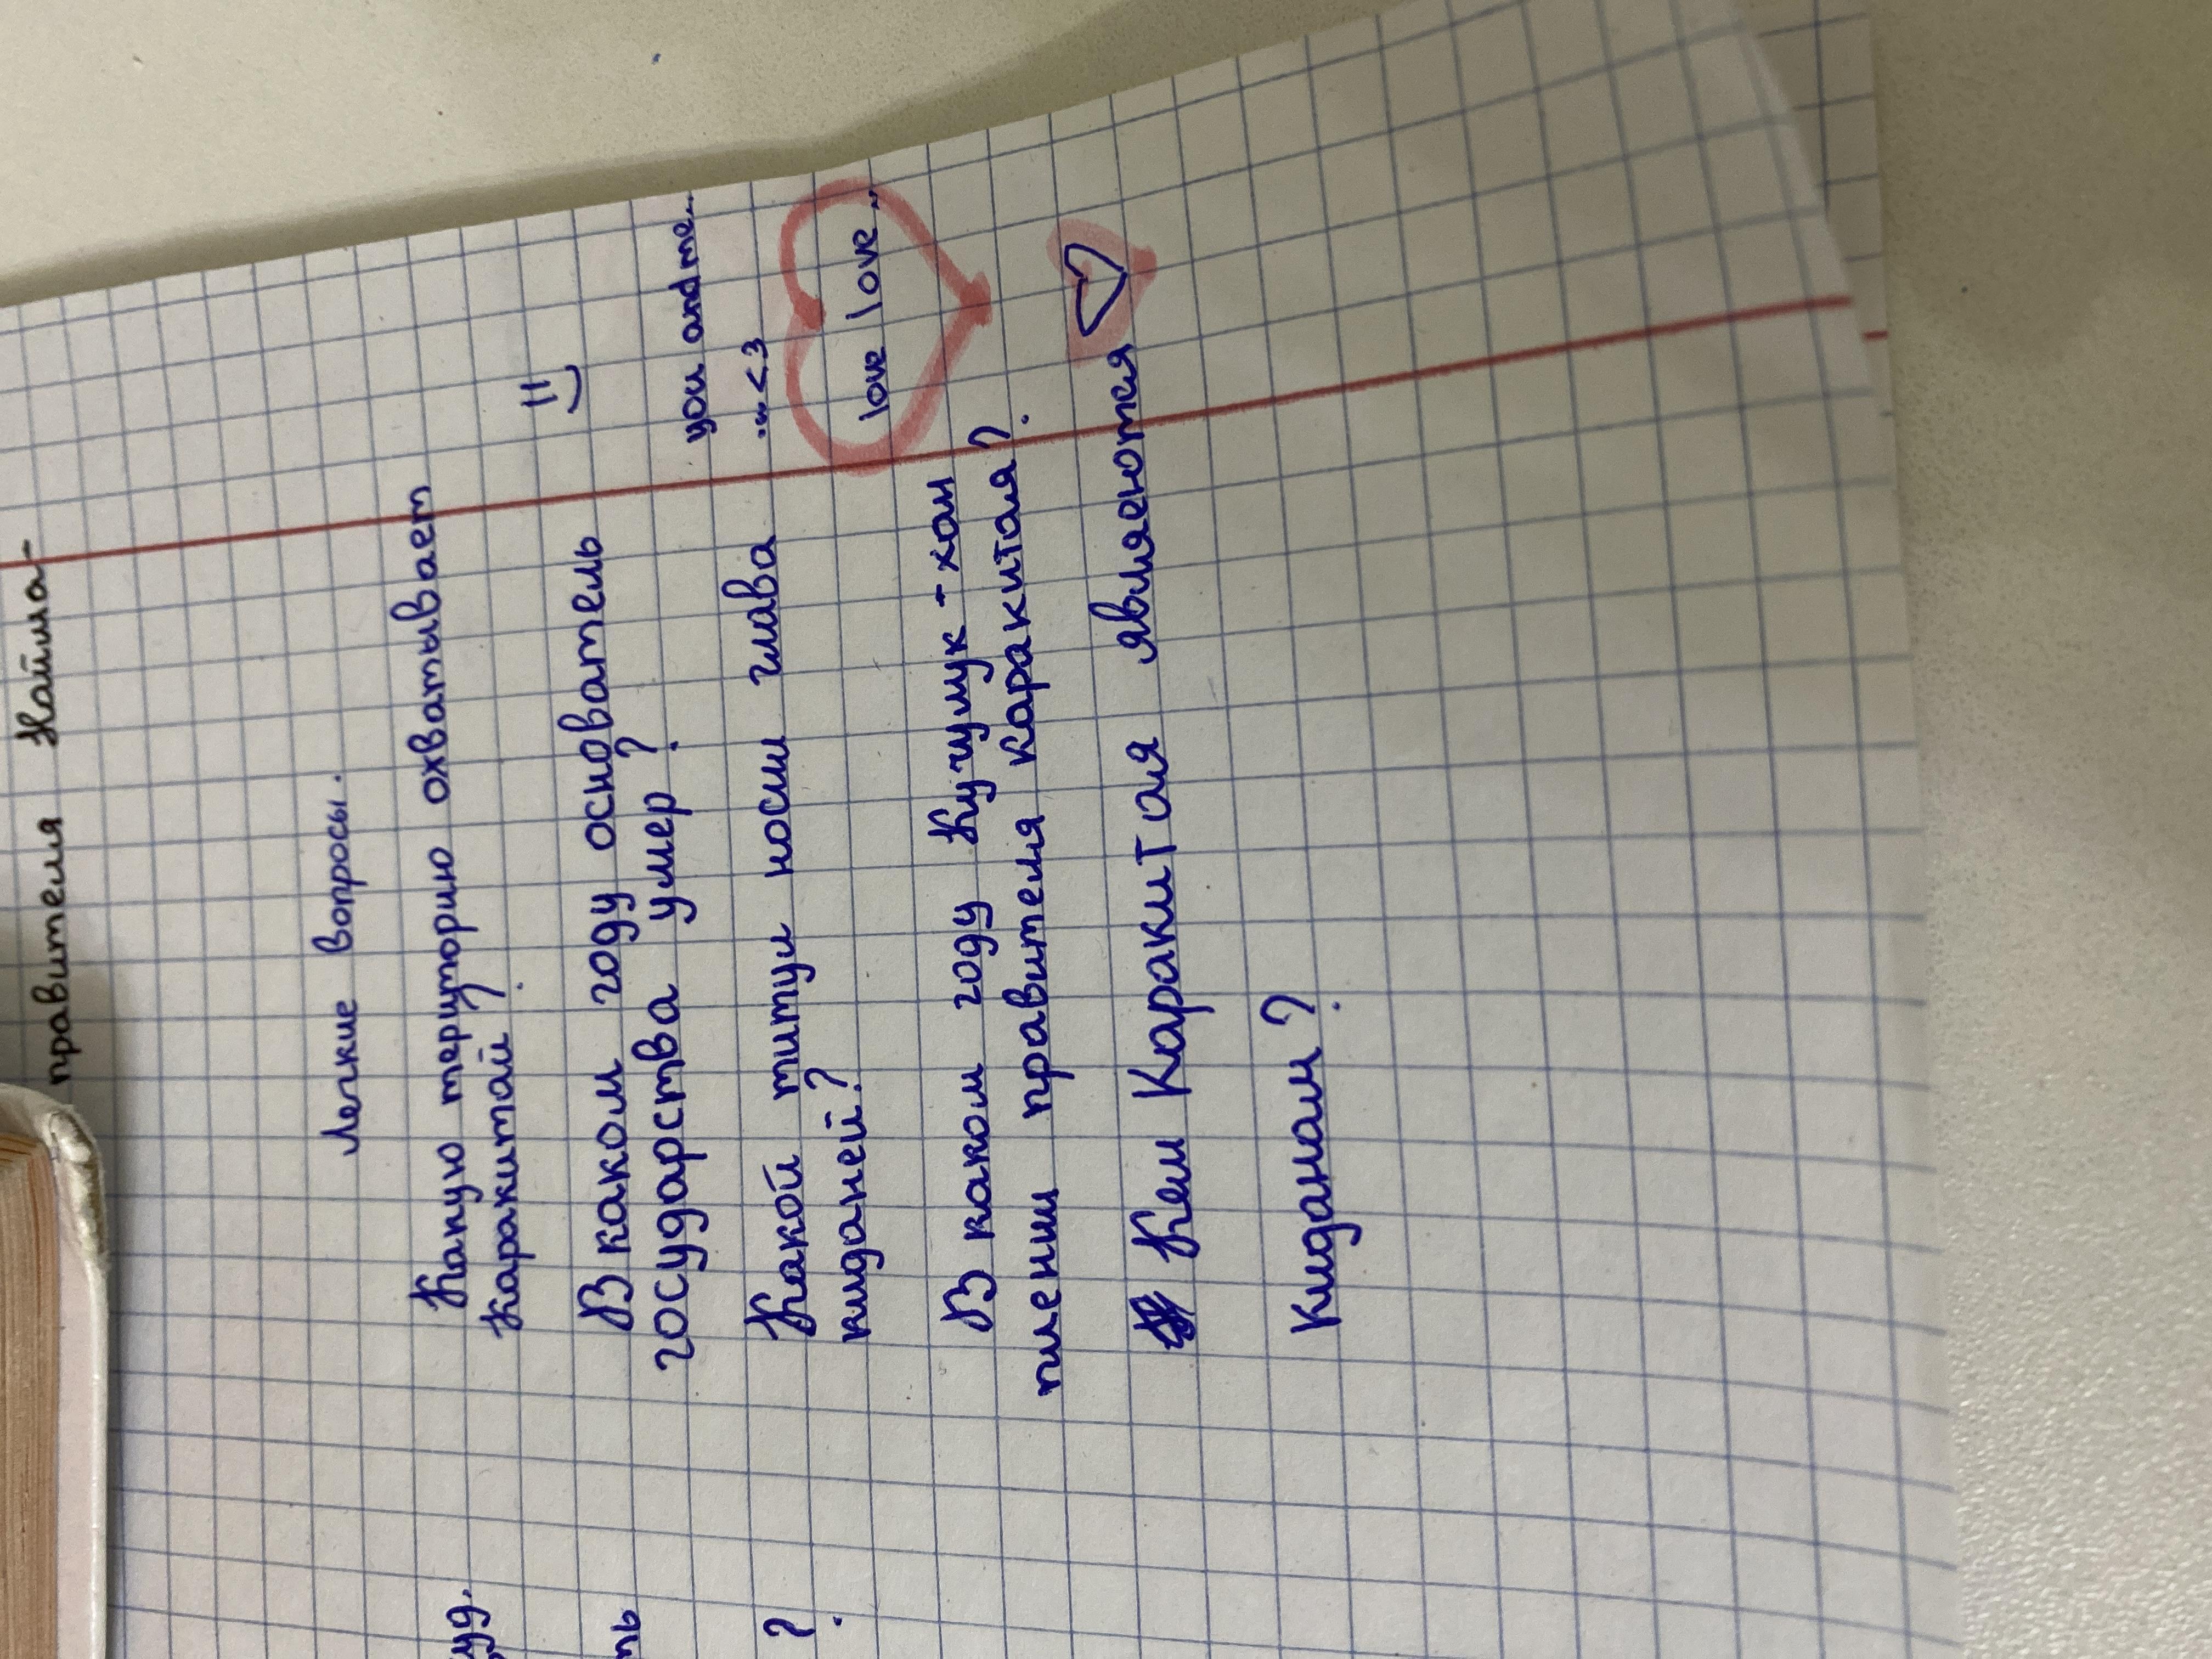 правителя Найма-
Легкие вопросы.
Какую територию охватывает
Каракитай?
=)
В каком году основатель
государства умер?
you and me..
Какой титул носил глава
...<3
киданей?
love love..
В каком году Кучулук-хан
пленил правителя каракитая?
Кем Каракитая являеются
Киданам?
уд.
ть
?